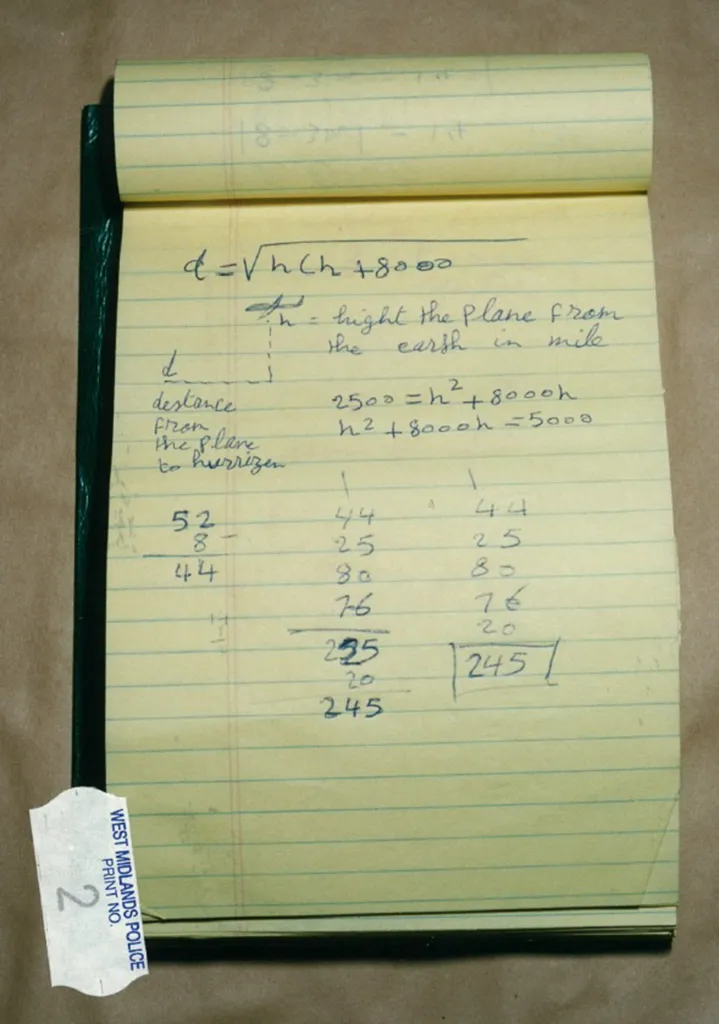 d = √h(h+8000
h = hight the plane from
the earth in mile
d
destance
from
the plane
to hurrizen
2500 = h² + 8000h
h² + 8000h = 5000
52
8 -
44
44
25
80
76
225
20
245
44
25
80
76
20
245
WEST MIDLANDS POLICE
PRINT NO.
2